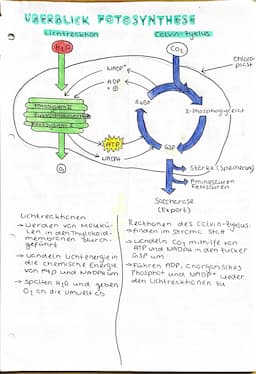 ÜBERBLICK FOTOSYNTHESE
Lichtreaktion
Calvin-Zyklus
H₂O
CO₂
Chloroplast
NADP⁺
ADP
+ ⓟ
RuBP
3-Phosphoglycerat
ATP
NADPH
G3P
O₂
Stärke (Speicherung)
Aminosäuren
Fettsäuren
Saccharose
(Export)
Lichtreaktionen
→ werden von Molekülen in den Thylakoidmembranen durchgeführt
→ wandeln Lichtenergie in die chemische Energie von ATP und NADPH um
→ spalten H₂O und geben O₂ an die Umwelt ab
Reaktionen des Calvin-Zyklus:
→ finden im Stroma statt
→ wandeln CO₂ mithilfe von
ATP und NADPH in den Zucker
G3P um
→ führen ADP, anorganisches
Phosphat und NADP⁺ wieder
den Lichtreaktionen zu